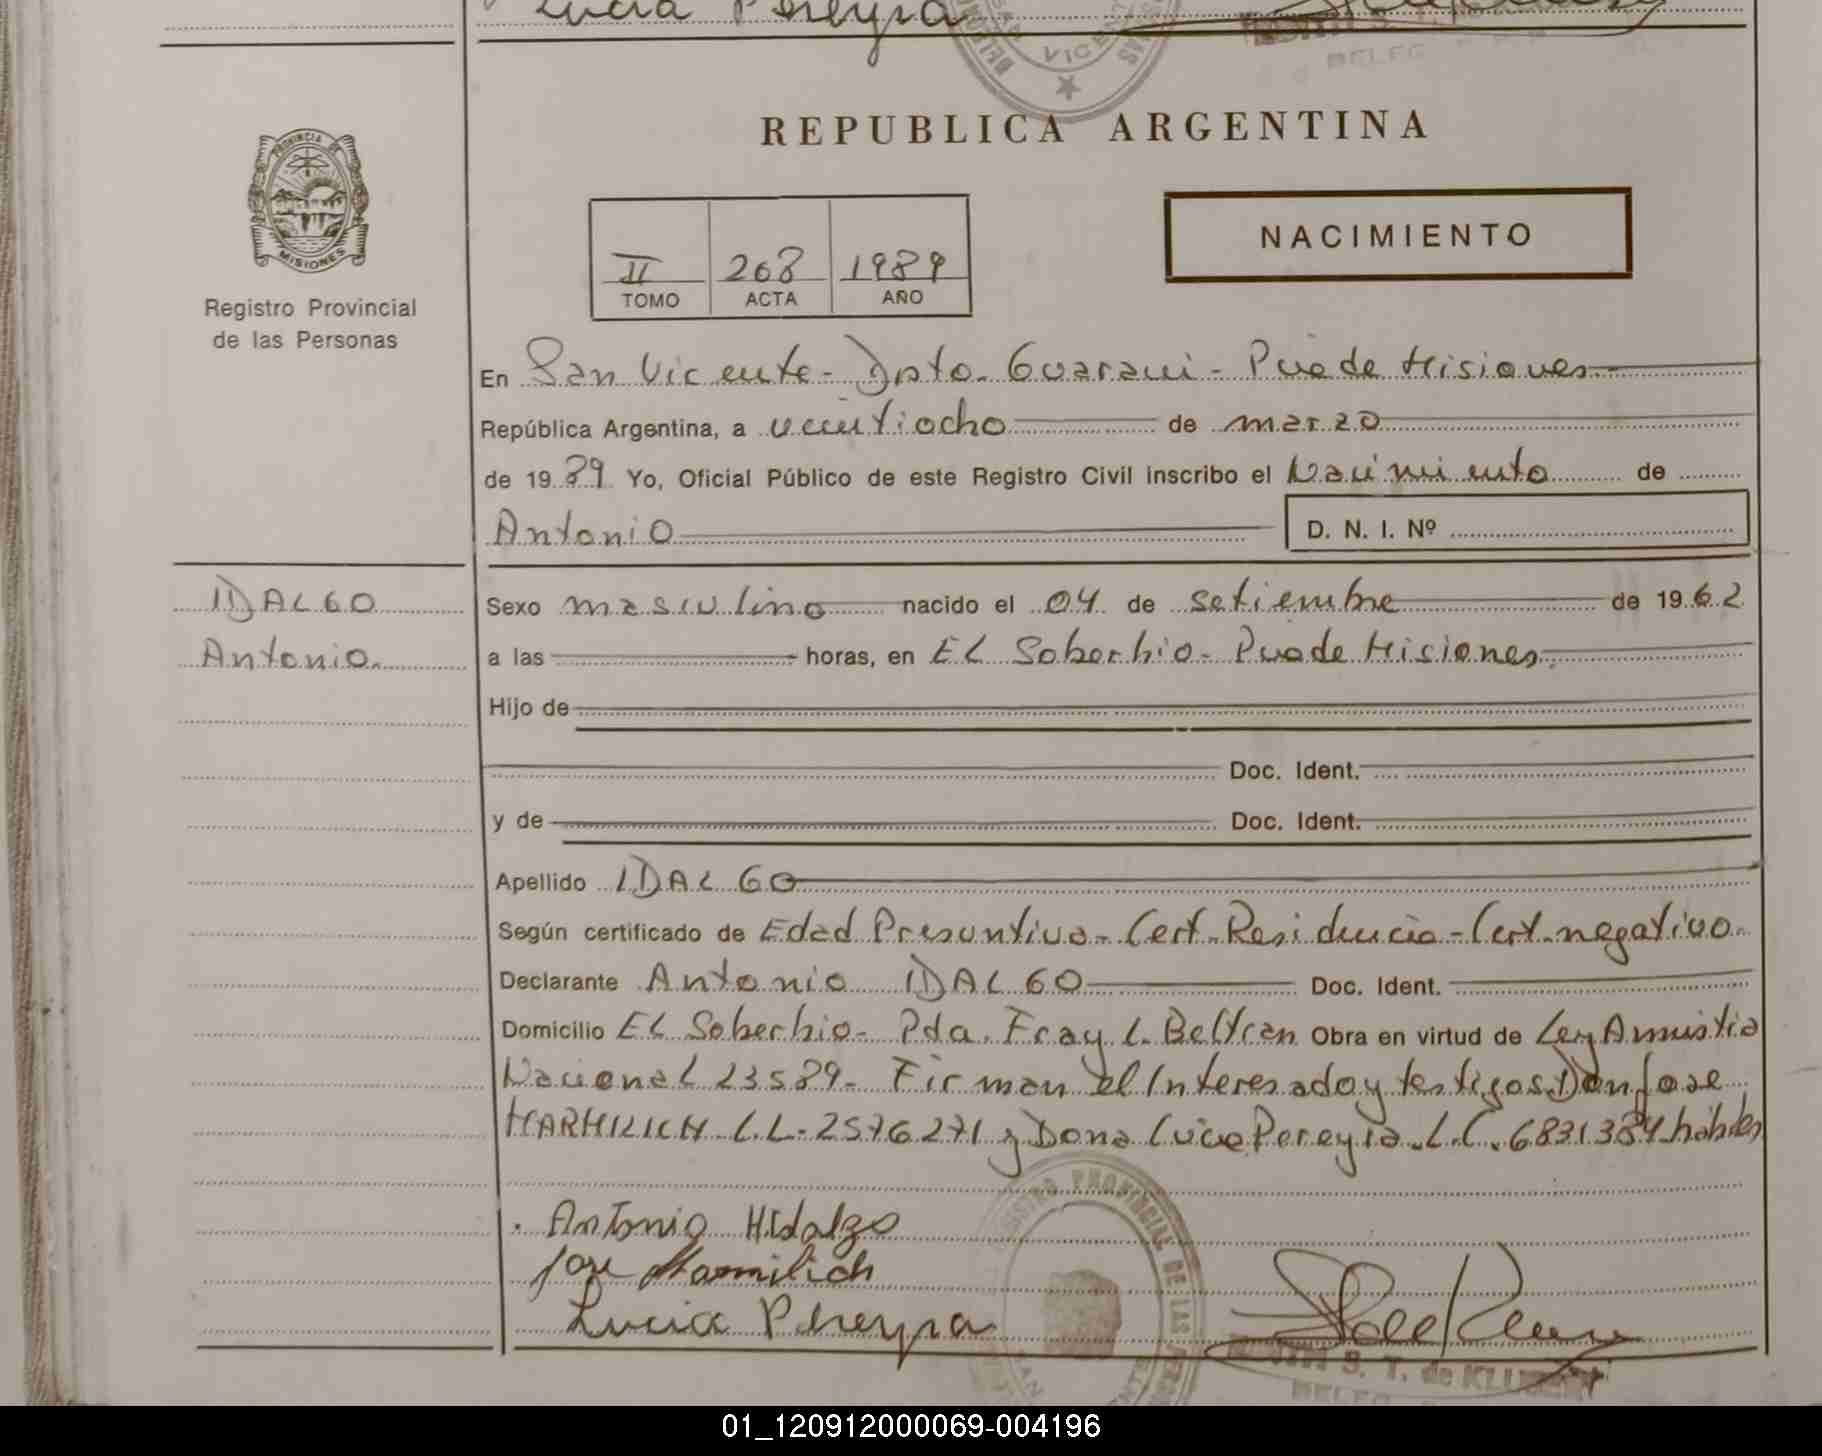 Lucia Pereyra
VICEN
BELEG
REPUBLICA ARGENTINA
PROVINCIA DE
MISIONES
Registro Provincial
de las Personas
II 268 1989
TOMO ACTA AÑO
NACIMIENTO
En San Vicente - Dpto. Guarani - Pcia de Misiones
República Argentina, a veintiocho de marzo
de 1989 Yo, Oficial Público de este Registro Civil inscribo el Nacimiento de
Antonio D. N. I. Nº
IDALGO
Antonio.
Sexo masculino nacido el 04 de setiembre de 1962
a las horas, en EL Soberbio - Pcia de Misiones.
Hijo de
Doc. Ident.
y de Doc. Ident.
Apellido IDALGO
Según certificado de Edad Presuntiva - Cert. Residencia - Cert. negativo.
Declarante Antonio IDALGO Doc. Ident.
Domicilio EL Soberbio - Pda. Fray L. Beltran Obra en virtud de Ley Amnistia
Nacional 23589 - Firman el Interesado y testigos Don Jose
MARMILICH L.L. 2576271 y Dona Lucia Pereyra L.C. 6831384 hábiles
Antonio Hidalgo
Jose Marmilich
Lucia Pereyra
REGISTRO PROVINCIAL DE LAS
S. T. de
01_120912000069-004196